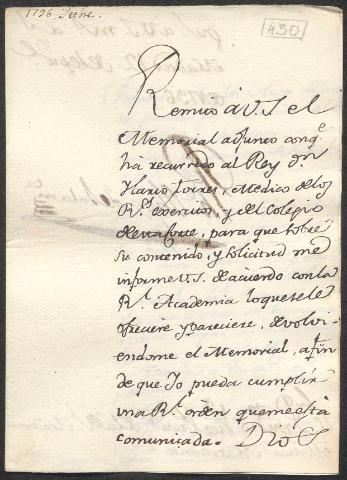 1736 Sepbre.
430
Remito à V.S el
Memorial adjunto con q.e
hà recurrido al Rey d.n
Ilario Torres, Medico de los
R.s exercitos, y del Colegio
de esta Corte, para que sobre
su contenido, y solicitud me
informe V.S. de acuerdo con la
R.l Academia lo que se le
ofreciere y pareciere, devolvi-
endome el Memorial, a fin
de que Yo pueda cumplir
una R.l orden que me està
comunicada. Dios